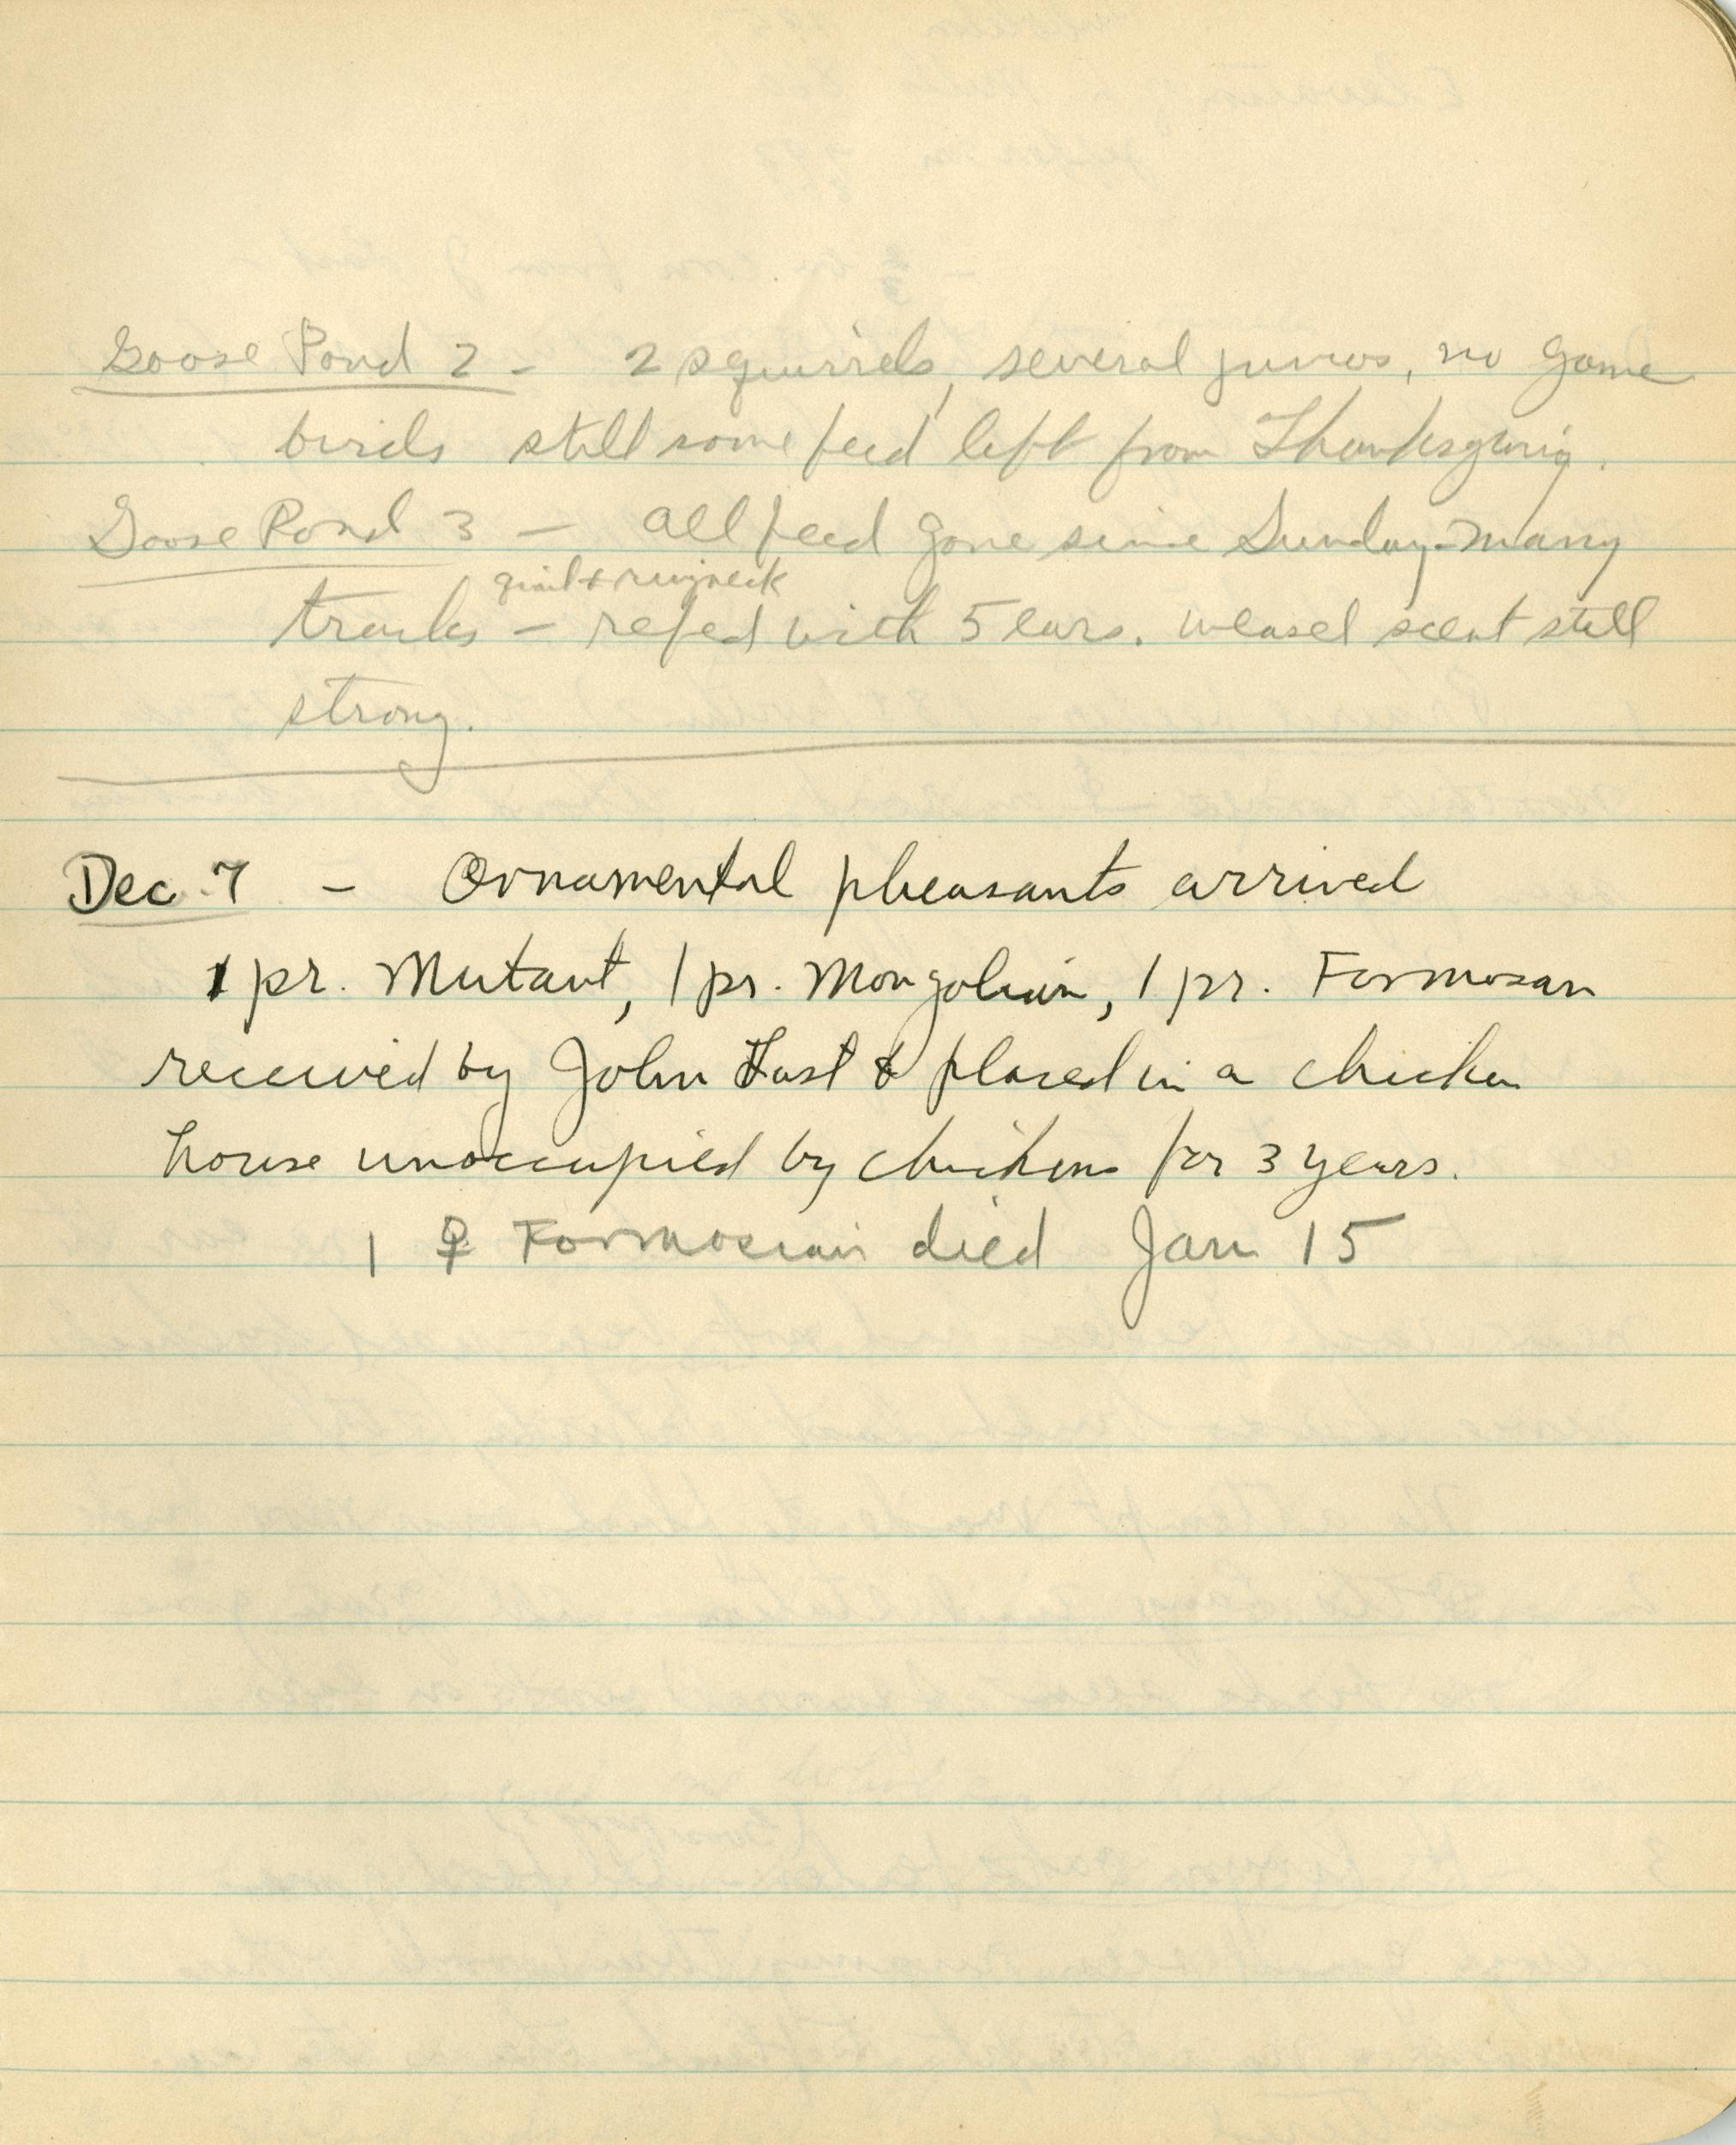 Goose Pond 2 - 2 squirrels, several juncos, no game
birds still some feed left from Thanksgiving.
Goose Pond 3 - all feed gone since Sunday - many
quail & ringneck
tracks - refed with 5 ears. weasel scent still
strong.
Dec 7 - Ornamental pheasants arrived
1 pr. Mutant, 1 pr. Mongolian, 1 pr. Formosan
received by John & placed in a chicken
house unoccupied by chickens for 3 years.
1 ♀ Formosian died Jan 15